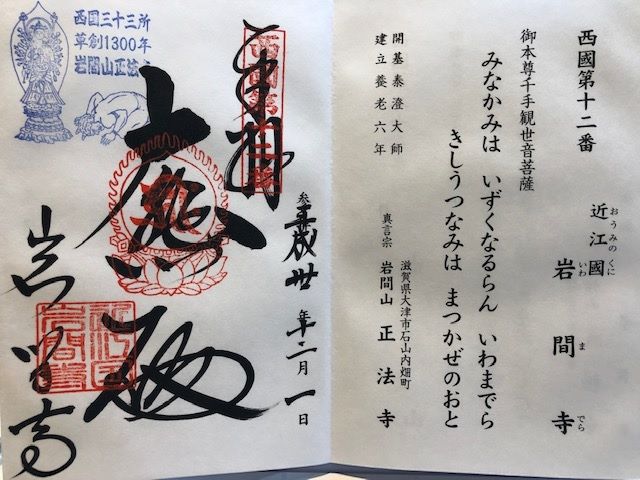 西國第十二番
近江國 岩間寺
おうみのくに いわ ま でら
御本尊千手観世音菩薩
みなかみは いずくなるらん いわまでら
きしうつなみは まつかぜのおと
開基泰澄大師
建立養老六年
滋賀県大津市石山内畑町
真言宗 岩間山 正法寺
奉拝
西国第十二番
参 平成丗年十二月一日
大悲殿
岩間寺
西国三十三所
草創1300年
岩間山正法寺